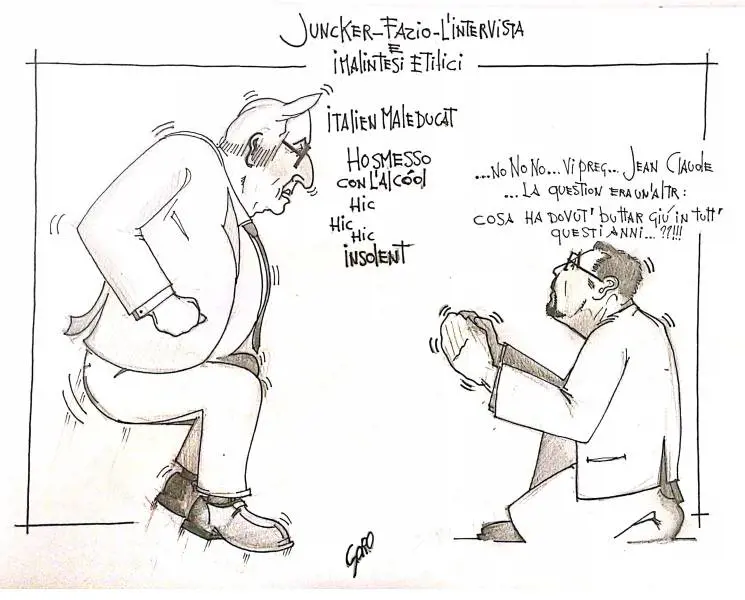 JUNCKER-FAZIO-L'INTERVISTA
E
I MALINTESI ETILICI
ITALIEN MALEDUCAT
HO SMESSO
CON L'ALCÓOL
HIC
HIC
HIC
INSOLENT
...NO NO NO... VI PREG... JEAN CLAUDE
... LA QUESTION ERA UN'ALTR:
COSA HA DOVUT' BUTTAR GIÚ IN TUTT'
QUESTI ANNI... ??!!!